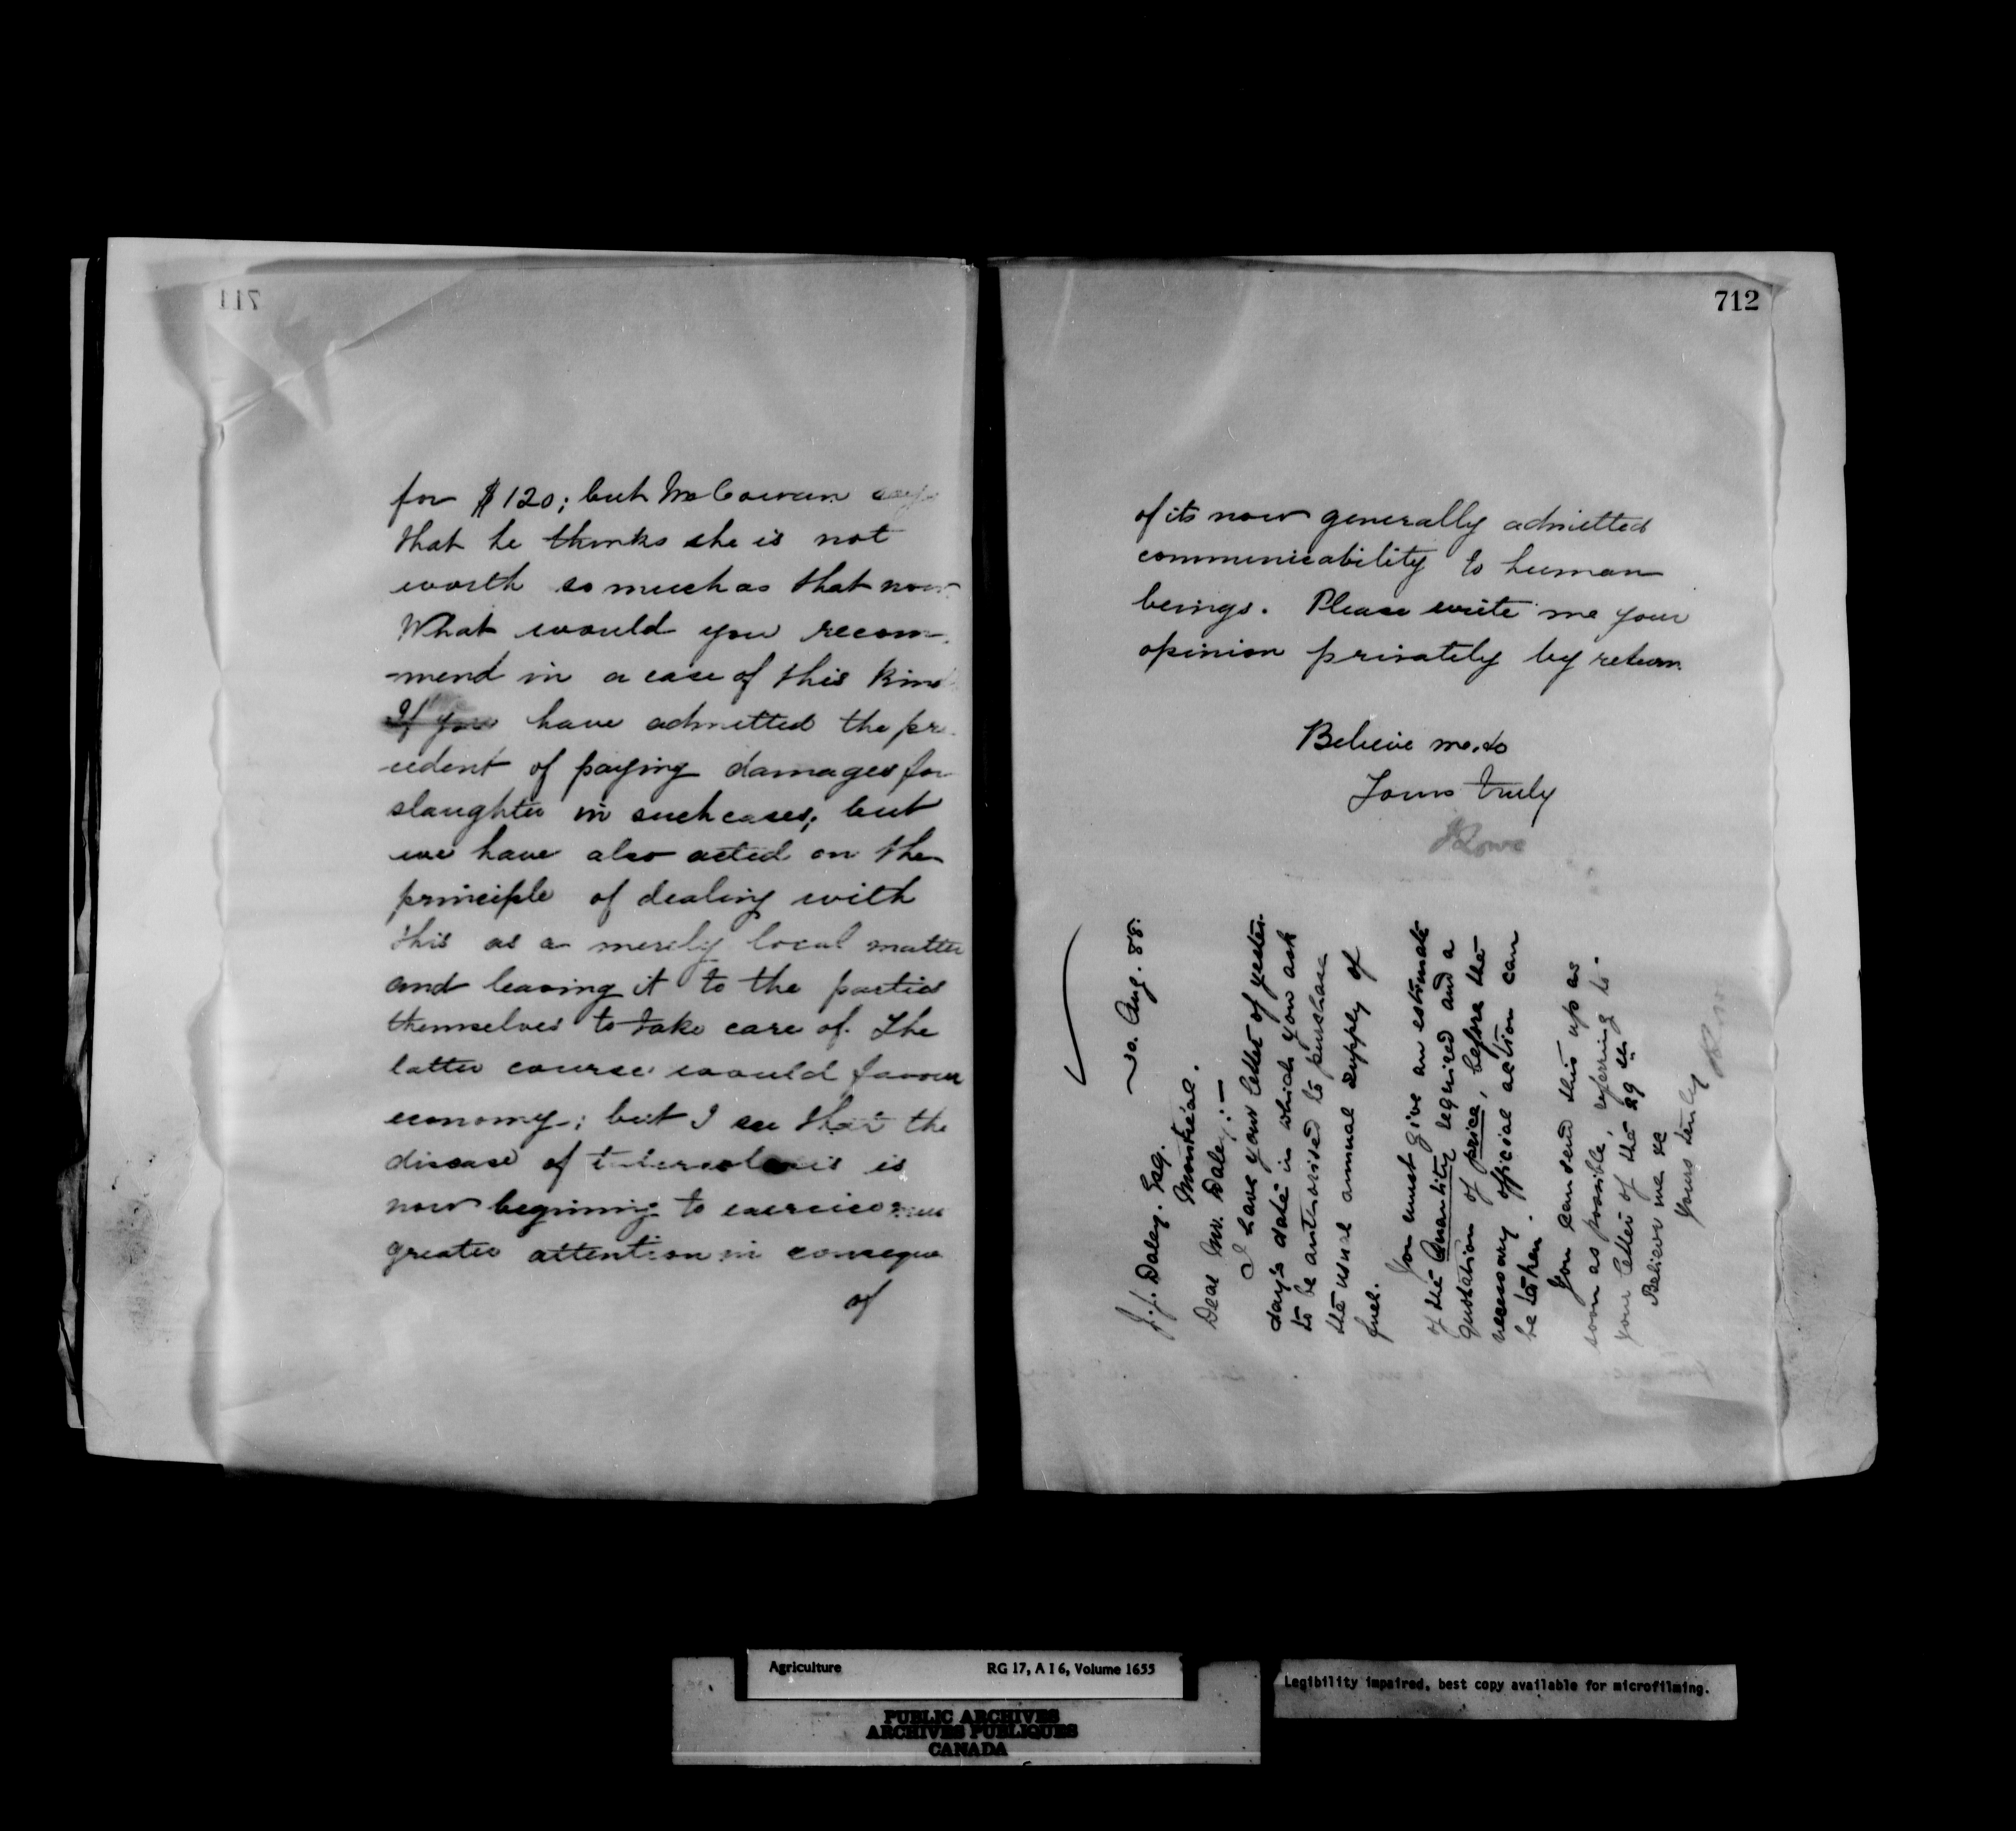 711
for $120; but McCowan says
that he thinks she is not
worth so much as that now
What would you recom-
-mend in a case of this kind
If you have admitted the pre
-cedent of paying damages for
slaughter in such cases; but
we have also acted on the
principle of dealing with
this as a merely local matter
and leaving it to the parties
themselves to take care of. The
latter course would favour
economy; but I see that the
disease of tuberculosis is
now begining to exercise
greater attention in conseque
of
712
of its now generally admitted
communicability to human
beings. Please write me your
opinion privately by return
Believe me, to
Yours truly
JLowe
30. Aug. 88.
J. J. Daley. Esq.
Montreal.
Dear Mr. Daley:—
I have your letter of yester-
day's date in which you ask
to be authorised to purchase
the usual annual supply of
fuel.
You must give an estimate
of the Quantity required and a
quotation of price, before the
necessary official action can
be taken.
You can send this up as
soon as possible, referring to
your letter of the 29th
Believe me &c
Yours truly
Agriculture RG 17, A I 6, Volume 1655
PUBLIC ARCHIVES
ARCHIVES PUBLIQUES
CANADA
Legibility impaired, best copy available for microfilming.